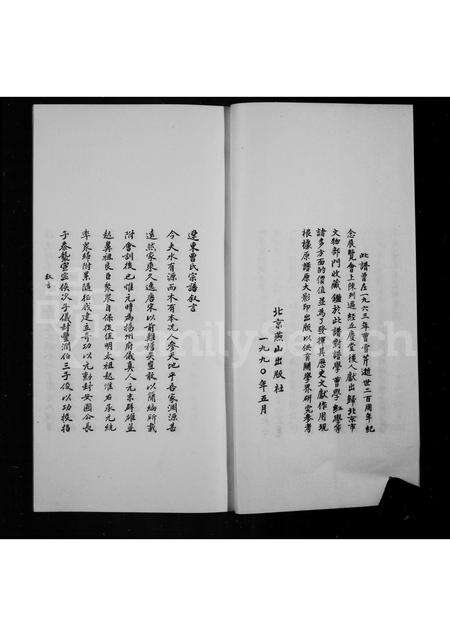 此譜曾在一九六三年曹雪芹逝世二百周年紀
念展覽會上陳列過經五慶堂後人獻出歸北京市
文物部門收藏鑑於此譜對譜學曹學紅學等
諸多方面的價值並為了發揮其歷史文獻作用現
根據原譜原大影印出版以供有關學界研究參考
北京燕山出版社
一九九〇年五月
遼東曹氏宗譜叙言
今夫水有源而木有本況人參天地乎吾家淵源甚
遠然家乘久逸唐宋以前難稽矣豈敢以簡編所載
附會訓後也惟元時為揚州府儀真人元末群雄並
起鼻祖良臣自聚衆自保後值明太祖起淮右承元統
率衆歸附累隨征戰建立奇功以元勳封安國公長
子泰襲宣寧侯次子儀封豐潤伯三子俊以功授指
叙言